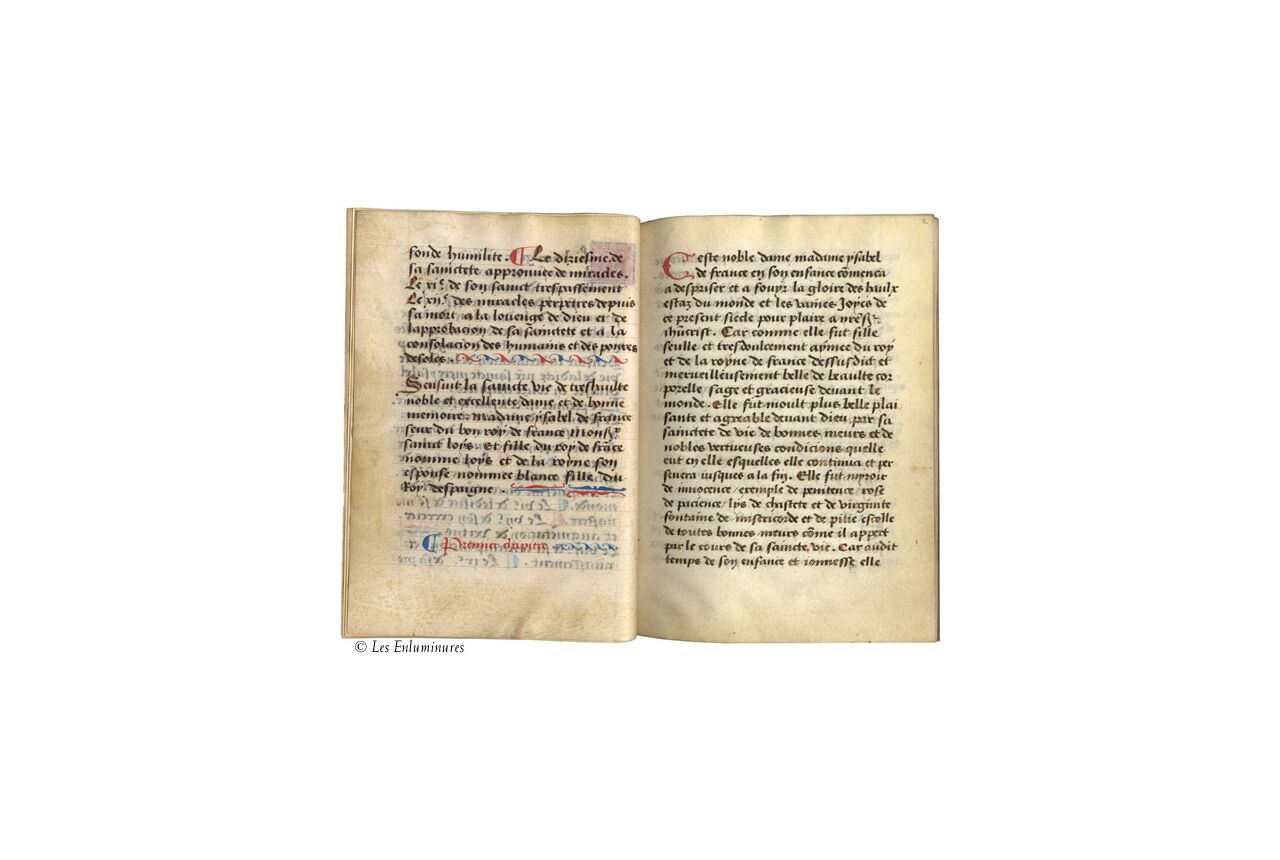 fonde humilite. Le diziesme. de
sa sainctete approuvee de miracles.
Le xi.e de son sainct trespassement
Le xii.e des miracles perpetres depuis
sa mort a la louenge de dieu et de
lapprobacion de sa sainctete et a la
consolacion des humains et des povres
desoles.
Sensuit la saincte vie de treshaulte
noble et excellente dame et de bonne
memoire. madame ysabel de france
seur du bon roy de france Mons.r
sainct loys. Et fille du roy de frāce
nomme loys et de la royne son
espouse nommee blance fille du
Roy despaigne.
Premier chapitre
Ceste noble dame madame ysabel
de france en son enfance cōmenca
a despriser et a fouyr la gloire des haulx
estaz du monde et les vaines Joyes de
ce present siecle pour plaire a
Car comme elle fut fille
seulle et tresdoulcement aymee du roy
et de la royne de france dessusdict et
merveilleusement belle de beaulte cor
porelle / sage et gracieuse devant le
monde. Elle fut moult plus belle plai
sante et agreable devant dieu par sa
sainctete de vie de bonnes meurs et de
nobles vertueuses condicions quelle
eut en elle esquelles elle continua et per
severa iusques a la fin. Elle fut myroir
de innocence / exemple de penitence / rose
de pacience / lys de chastete et de virginite
fontaine de misericorde et de pitie / escolle
de toutes bonnes meurs cōme il appert
par le cours de sa saincte vie. Car audit
temps de son enfance et ionnesse elle
© Les Enluminures